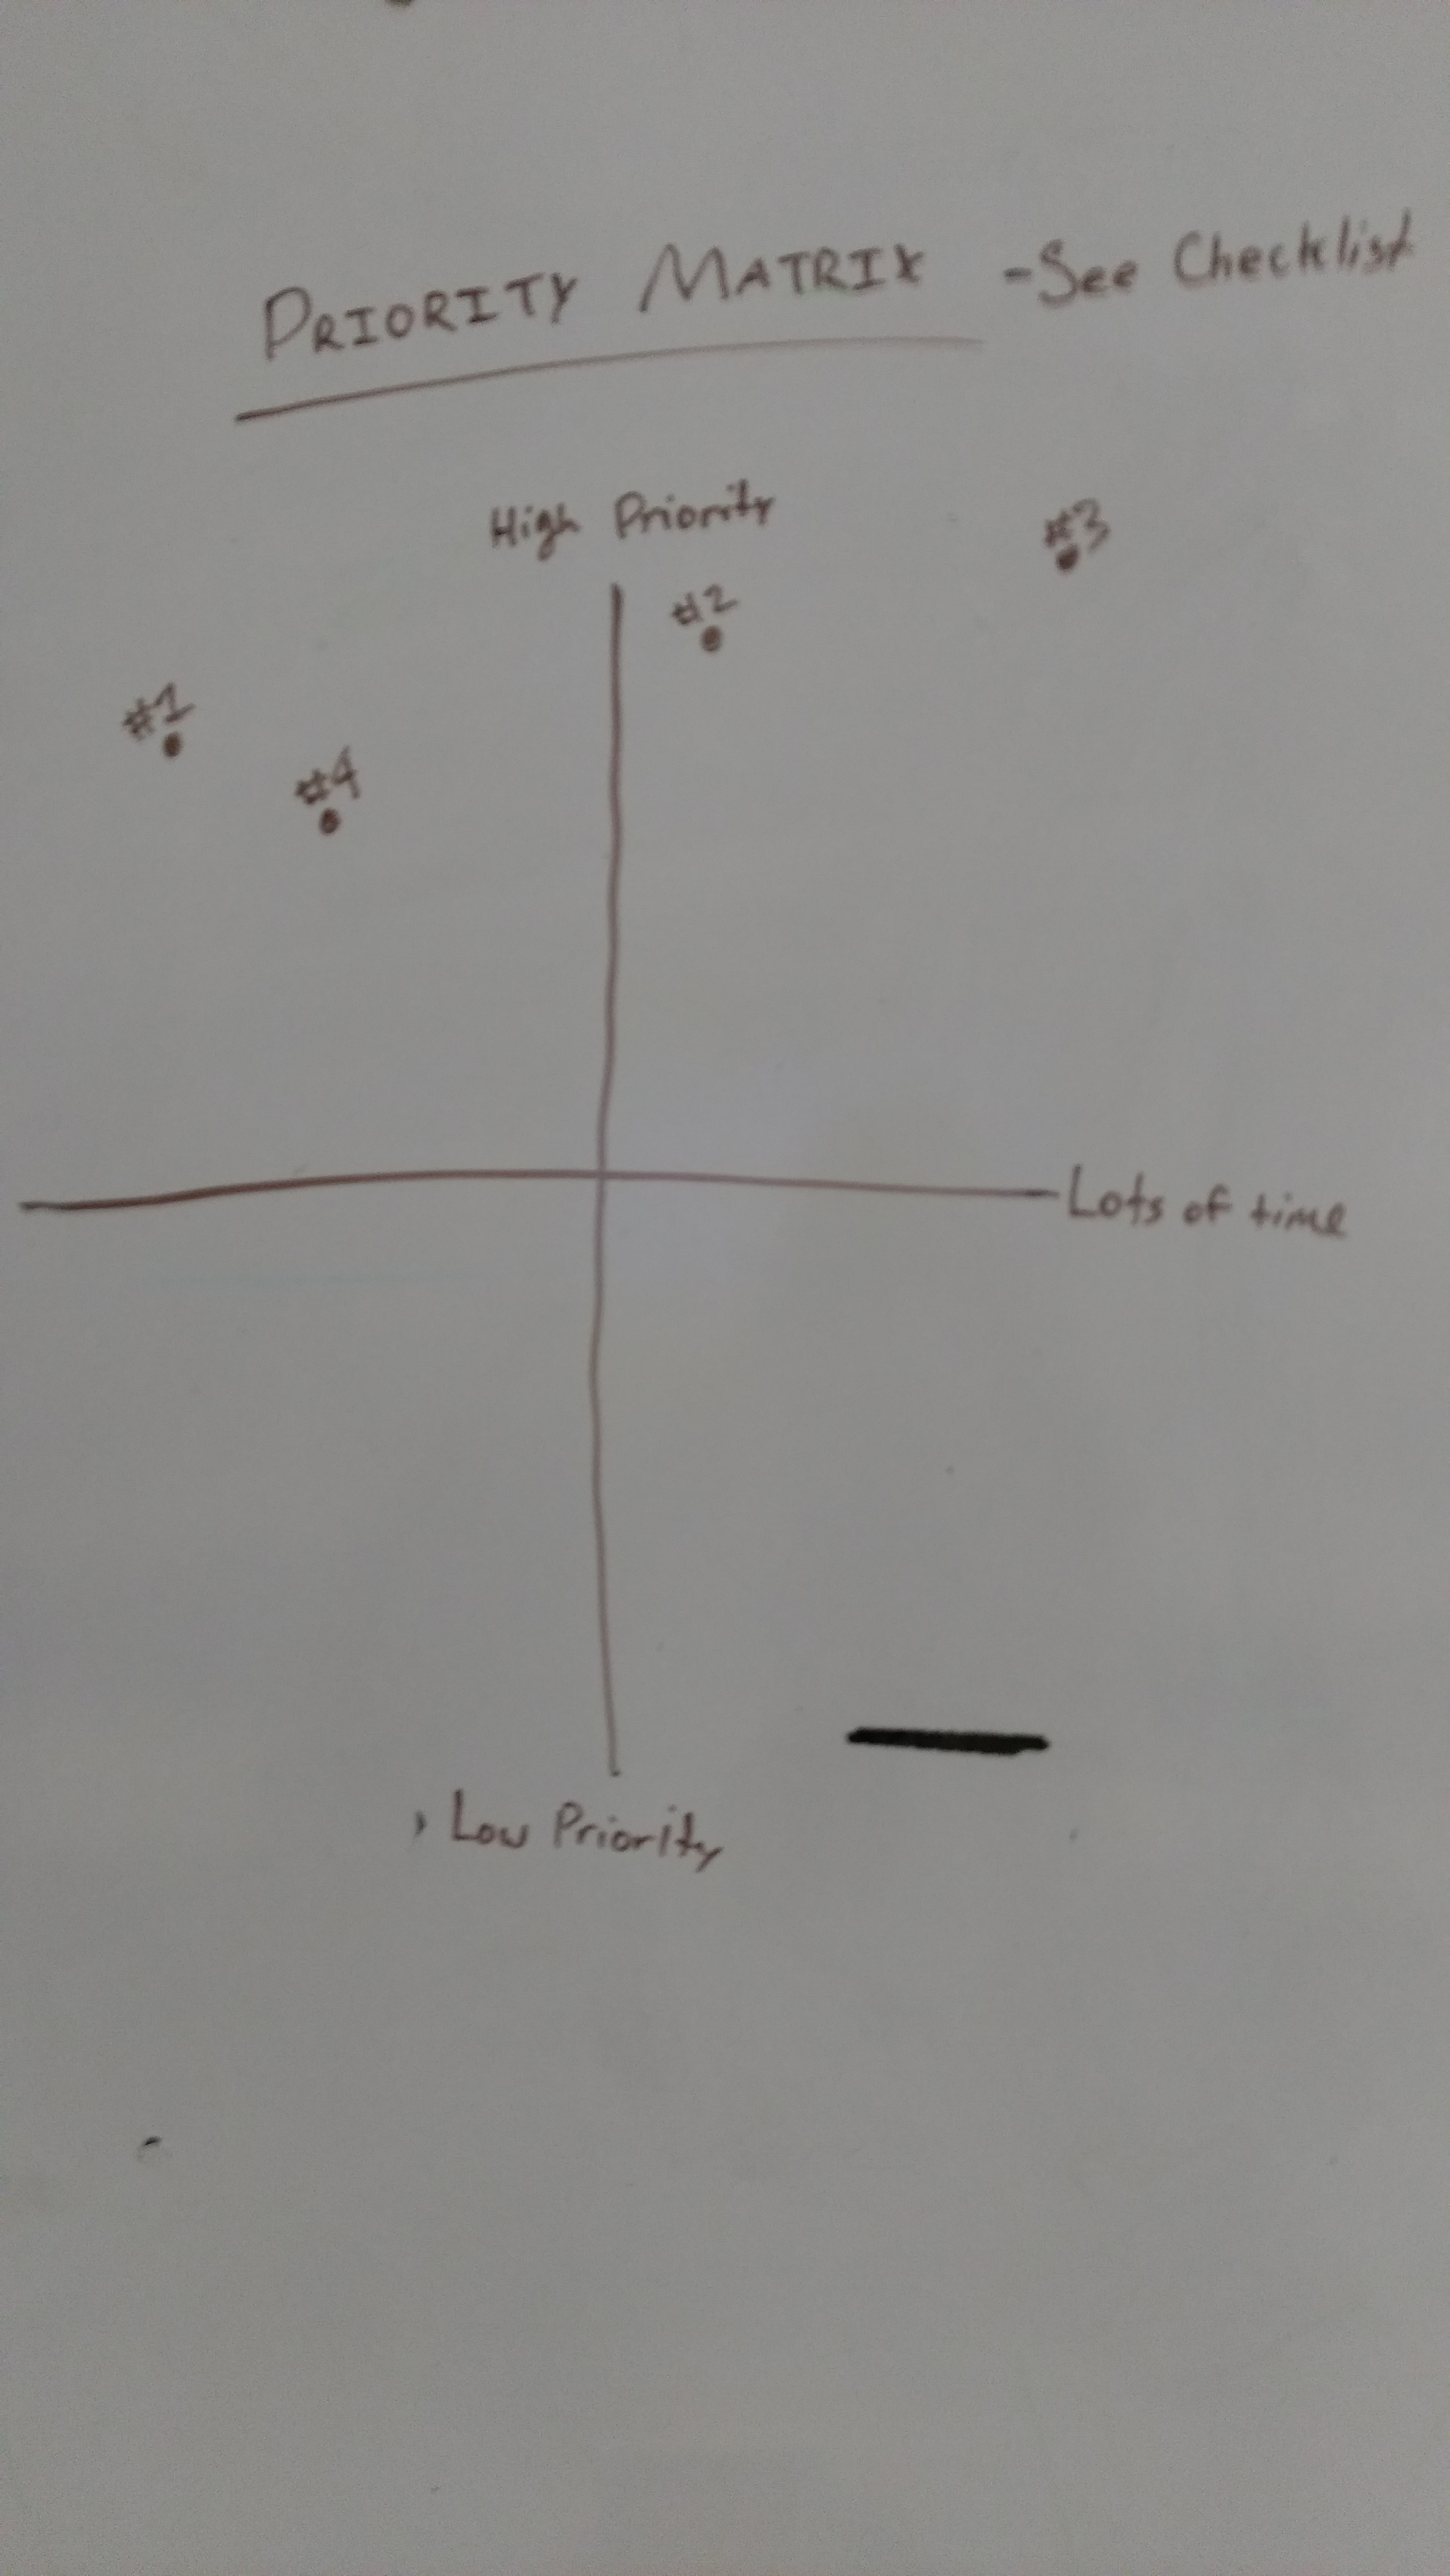 PRIORITY MATRIX - See Checklist
High Priority
#3
#2
#1
#4
Lots of time
Low Priority